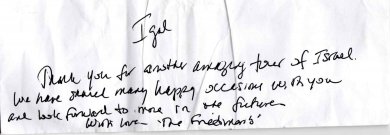 Igal
Thank you for another amazing tour of Israel.
We have shared many happy occasions with you
and look forward to more in the future
With love - 'The Friedman's'